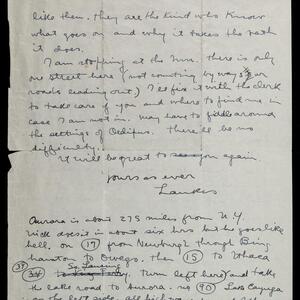 like them. They are the kind who know
what goes on and why it takes the path
it does.
I am stopping at the Inn. There is only
one street here (not counting by ways or
roads leading out.) I'll fix it with the clerk
to take care of you and where to find me in
case I am not in. may have to fiddle around
the settings of Oedipus. There'll be no
difficulty.
It will be great to see you again.
yours as ever
Landes
Aurora is about 275 miles from N.Y.
Nick does it in about six hrs but he goes like
hell. on (17) from Newburgh through Bing
hamton to Owego. then (15) to Ithaca
(34) to Turn left here and take
the lake road to Aurora. no (90) Lake Cayuga
on the left side. all